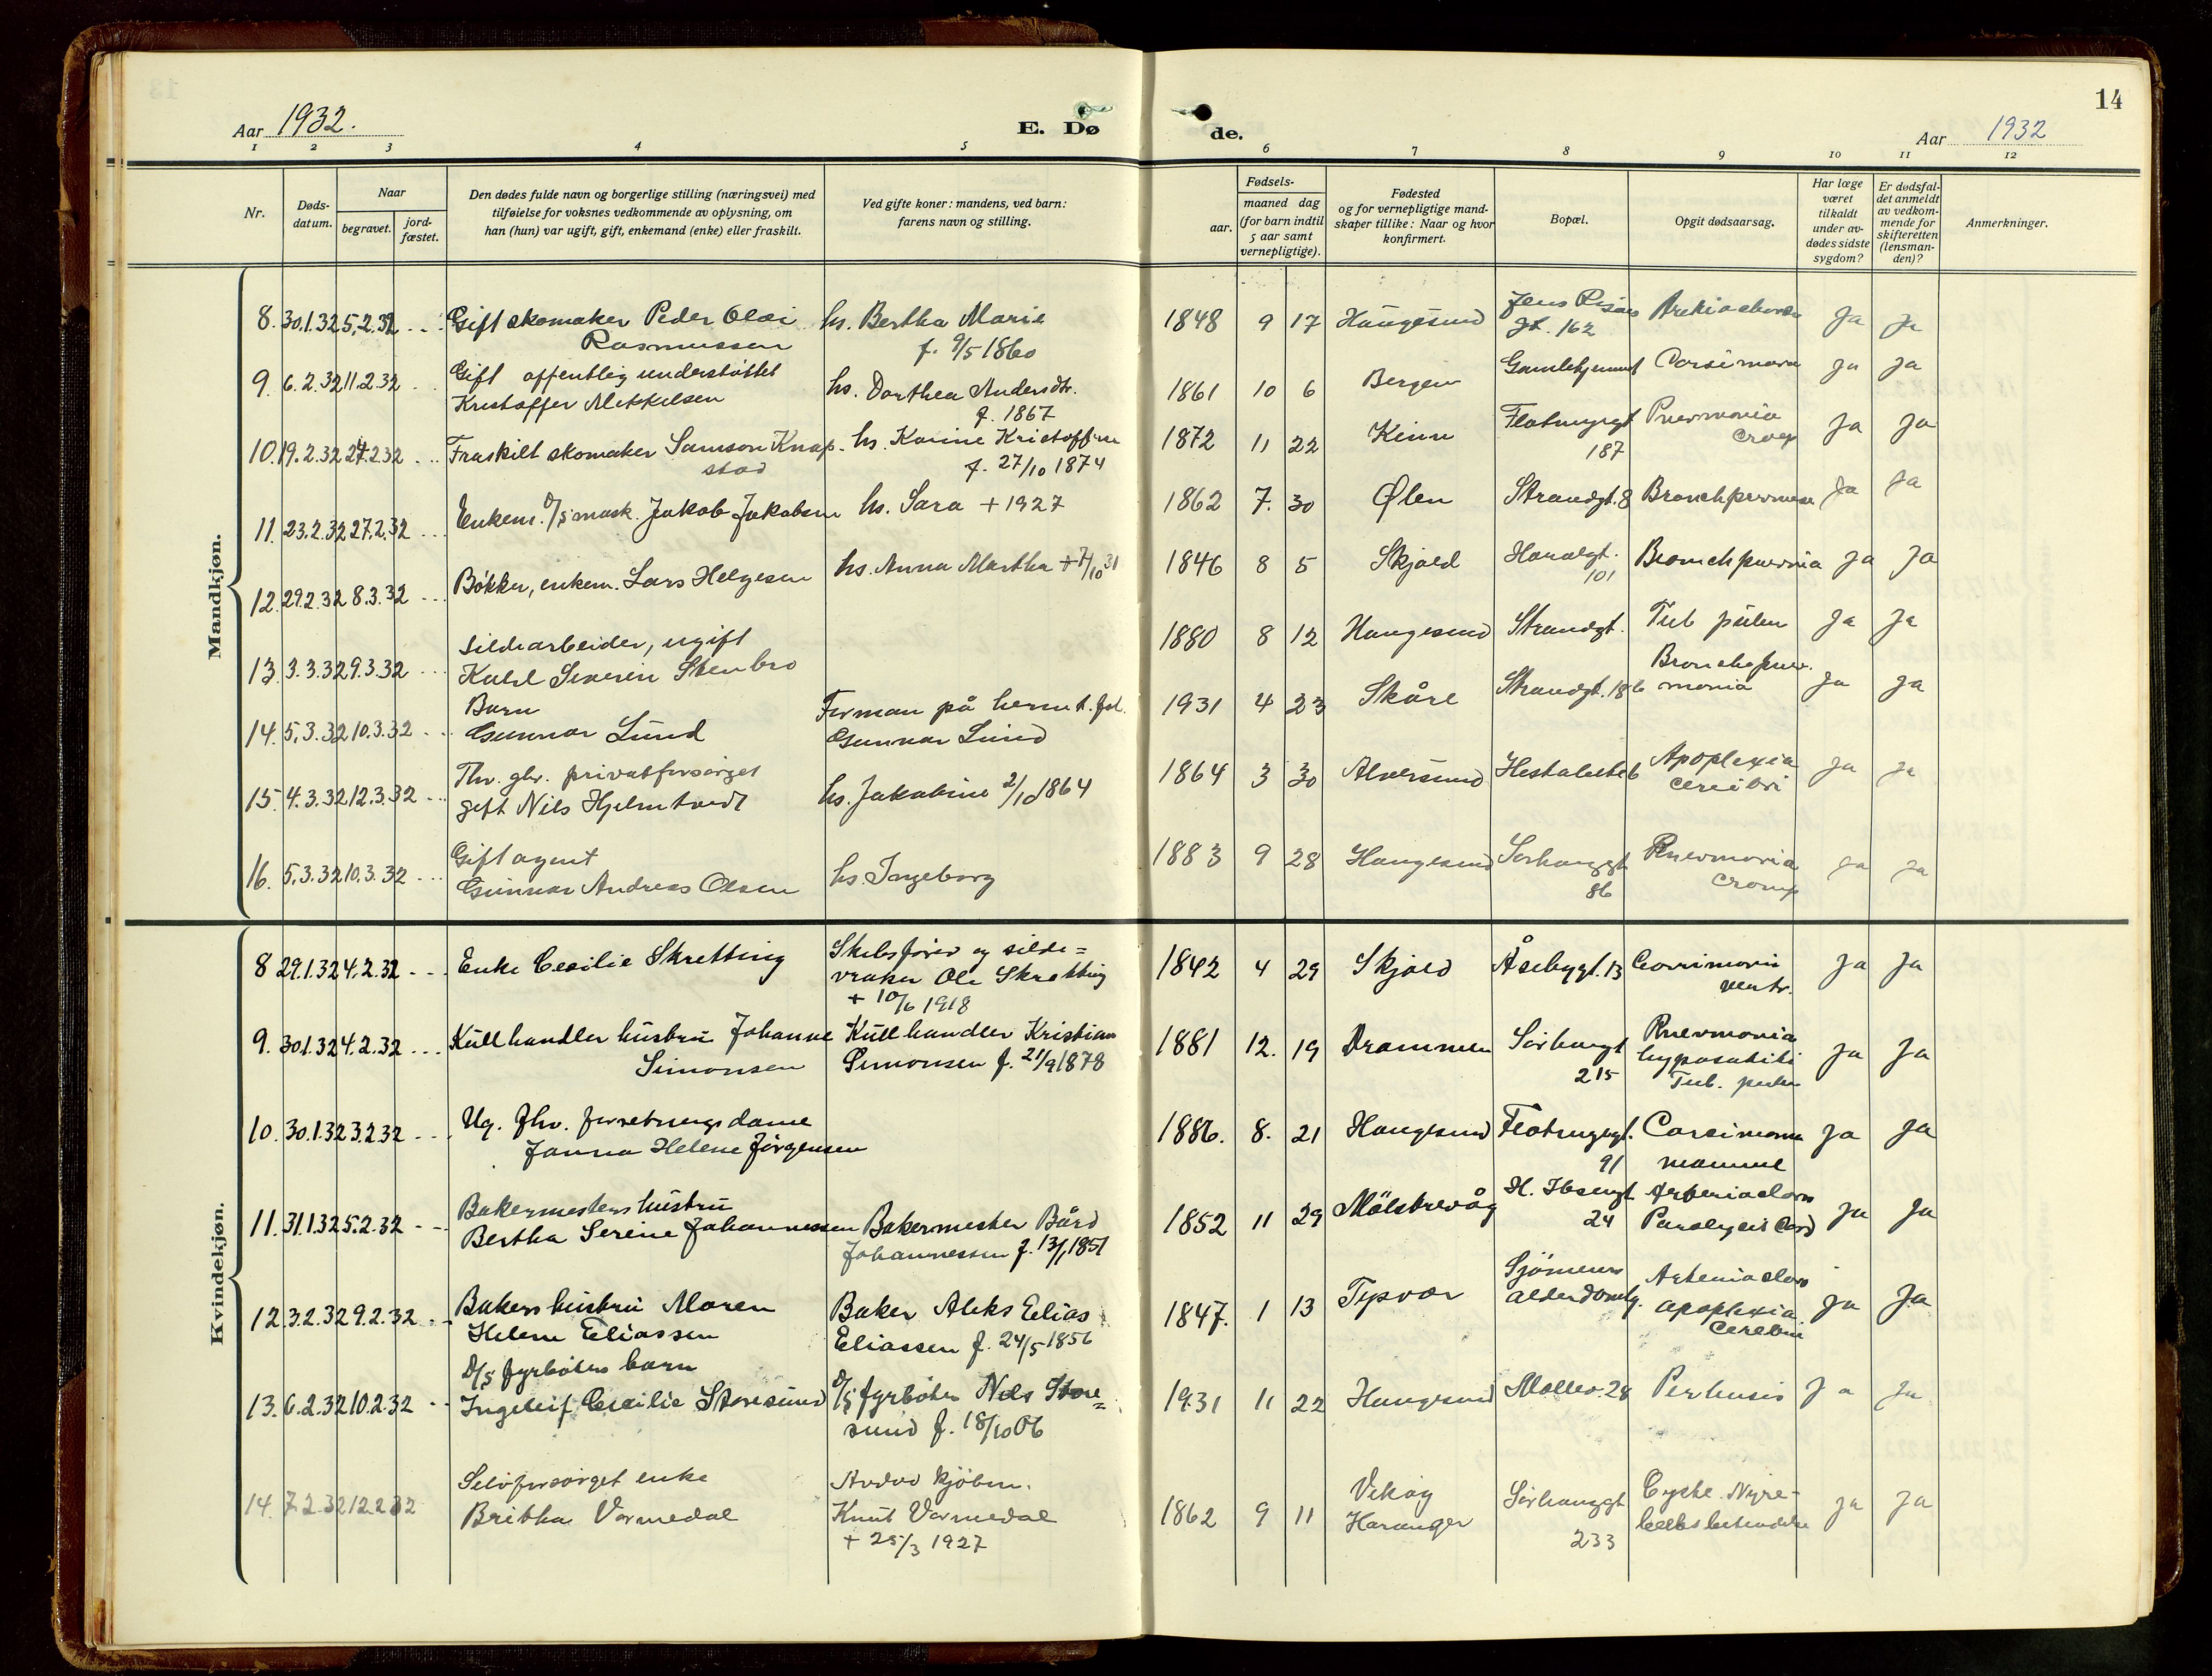 14
Aar 1932.
E. Dø
de.
Aar 1932
1 2 3 4 5 6 7 8 9 10 11 12
Nr.
Døds-
datum.
Naar
begravet.
jord-
fæstet.
Den dødes fulde navn og borgerlige stilling (næringsvei) med
tilføielse for voksnes vedkommende av oplysning, om
han (hun) var ugift, gift, enkemand (enke) eller fraskilt.
Ved gifte koner: mandens, ved barn:
farens navn og stilling.
Fødsels-
aar.
maaned dag
(for barn indtil
5 aar samt
vernepligtige).
Fødested
og for vernepligtige mand-
skaper tillike: Naar og hvor
konfirmert.
Bopæl.
Opgit dødsaarsag.
Har læge
været
tilkaldt
under av-
dødes sidste
sygdom?
Er dødsfal-
det anmeldt
av vedkom-
mende for
skifteretten
(lensman-
den)?
Anmerkninger.
Mandkjøn.
8. 30.1.32 5.2.32 Gift skomaker Peder Olai hs. Bertha Marie 1848 9 17 Haugesund Ja Ja
Rasmussen f. 9/5 1860 gt. 162
9. 6.2.32 11.2.32 Gift offentlig understøttet hs. Dorthea Andersdtr. 1861 10 6 Bergen Gamlehjemmet Ja Ja
Kristoffer Mikkelsen f. 1867
10. 19.2.32 24.2.32 Fraskilt skomaker Samson Knap- hs. Karine Kristoffine 1872 11 22 Kinn Flotmyrgt Pneumonia Ja Ja
stad f. 27/10 1874 187 croup
11. 23.2.32 27.2.32 Enkem. D/S mask. Jakob Jakobsen hs. Sara + 1927 1862 7. 30 Ølen Strandgt. 8 Ja Ja
12. 29.2.32 8.3.32 Bøkker, enkem. Lars Helgesen hs. Anna Martha + 7/10 31 1846 8 5 Skjold Haralgt. Ja Ja
101
13. 3.3.32 9.3.32 Sildearbeider, ugift 1880 8 12 Haugesund Strandgt. Tub pulm Ja Ja
Severin Stenbro
14. 5.3.32 10.3.32 Barn 1931 4 23 Skåre Strandgt. 186 Ja Ja
Gunnar Lund Gunnar Lund
15. 4.3.32 12.3.32 Thv. ghv. privatforsørget hs. Jakobine 2/10 1864 1864 3 30 Alversund Apoplexia Ja Ja
gift Nils Hjelmtvedt cerebri
16. 5.3.32 10.3.32 Gift agent hs. Ingeborg 1883 9 28 Haugesund Sørhauggt Pneumonia Ja Ja
Gunnar Andreas Olsen 86 croup
Kvindekjøn.
8 29.1.32 4.2.32 Enke Cecilie Skretting Skibsfører og silde= 1842 4 29 Skjold Åsebygt. 13 Ja Ja
vraker Ole Skretting ventr.
+ 10/6 1918
9. 30.1.32 4.2.32 Kullhandler hustru Johanne Kullhandler Kristian 1881 12. 19 Drammen Sørhaugt Pneumonia Ja Ja
Simonsen Simonsen f. 21/9 1878 215
Tub. pulm
10. 30.1.32 3.2.32 Ug. fhv. forretningsdame 1886. 8. 21 Haugesund Flotmyrgt. Ja Ja
Janna Helene Jørgensen 91 mamme
11. 31.1.32 5.2.32 Bakermesters hustru Bakermester Bård 1852 11 29 Mölstrevåg H. Ibsengt. Ja Ja
Bertha Serine Johannessen Johannessen f. 13/1 1851 24 Paralysis Cord
12. 3.2.32 9.2.32 Bakers hustru Maren Baker Aleks Elias 1847. 1 13 Tysvær Sjömenns Ja Ja
Helene Eliassen Eliassen f. 24/5 1856 apoplexia
13. 6.2.32 10.2.32 D/S fyrbøters barn D/S fyrbøter Nils Store= 1931 11 22 Haugesund 28 Ja Ja
Ingeleif Cecilie Storesund sund f. 18/10 06
14. 7.2.32 12.2.32 Selvforsørget enke 1862 9 11 Vikøy Sørhauggt Cyste. Nyre- Ja Ja
Britha Vormedal Knut Vormedal 233
+ 25/3 1927